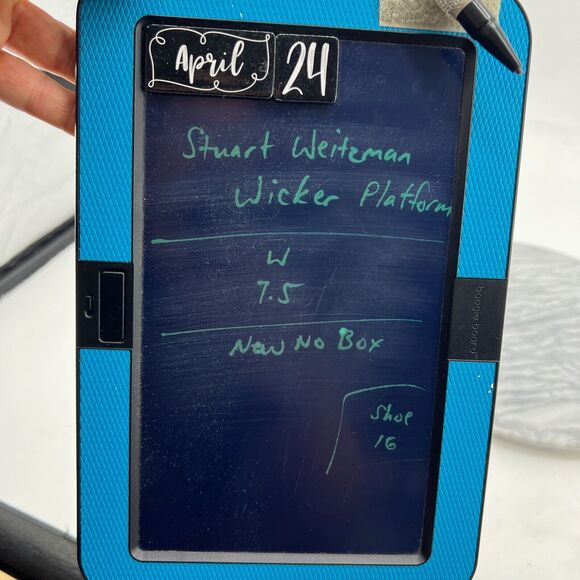 April 24
Stuart Weitzman
Wicker Platform
W
7.5
New No Box
Shoe
16
boogie board